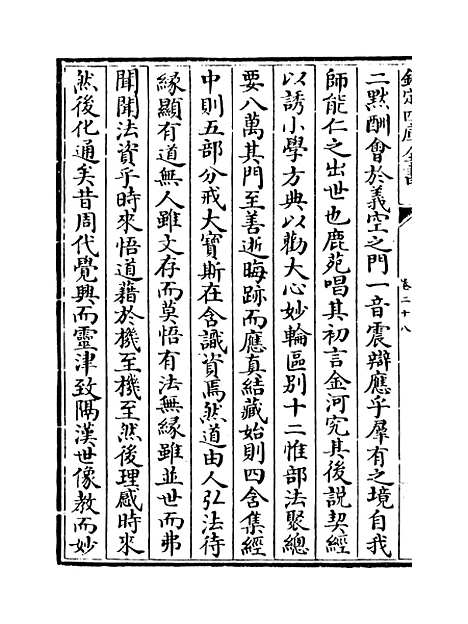 欽定四庫全書
卷二十八
二默酬會於義空之門一音震辯應乎羣有之境自我
師能仁之出世也鹿苑唱其初言金河究其後說契經
以誘小學方典以勸大心妙輪區别十二惟部法聚總
要八萬其門至善逝晦跡而應真結藏始則四含集經
中則五部分戒大寶斯在含識資焉然道由人弘法待
緣顯有道無人雖文存而莫悟有法無緣雖並世而弗
聞聞法資乎時來悟道藉於機至機至然後理感時來
然後化通矣昔周代覺興而靈津致隔漢世像教而妙